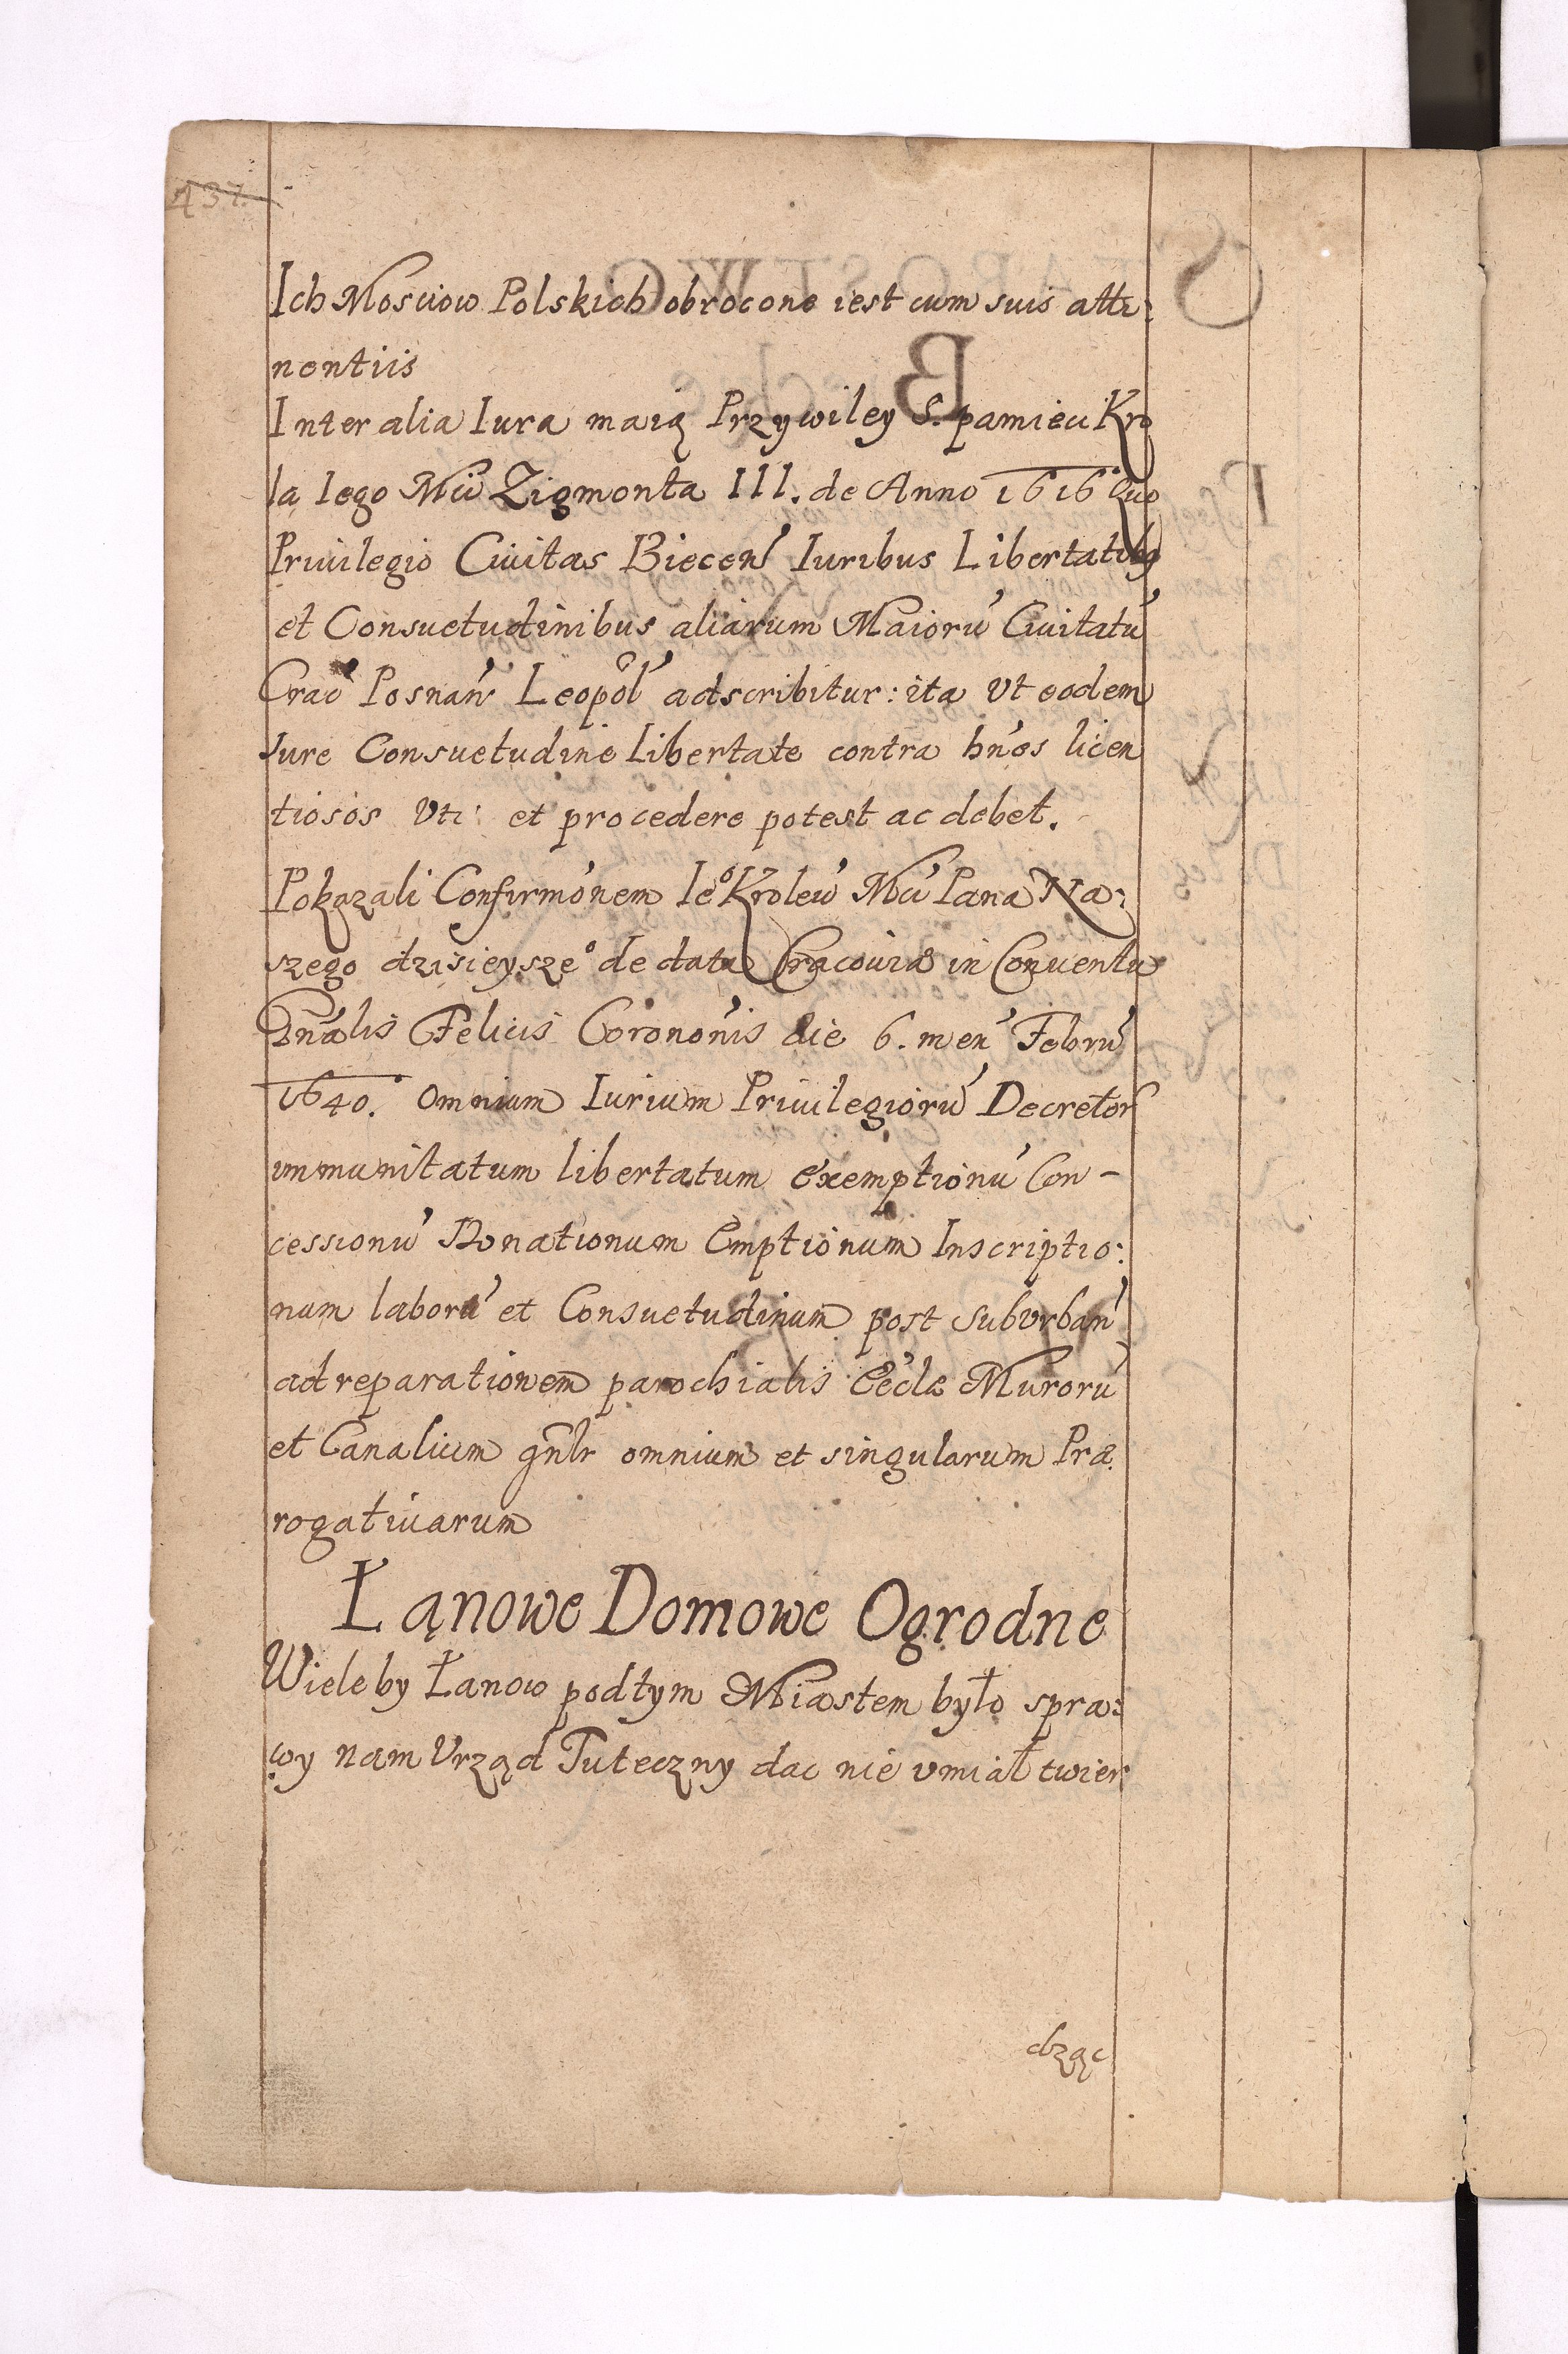 437.
Ich Mosciow Polskich obrocone iest cum suis atti:
nentiis
Inter alia Iura maią Przywiley S. pamieci Kro
la Iego Mci Zigmonta III. de Anno 1616 Quo
Priuilegio Ciuitas Biecen̄ Iuribus Libertatibꝰ
et Consuetudinibus aliarum Maiorū Ciuitatū
Crac̄ Posnan̄ Leopol̄ adscribitur: ita Vt eodem
Iure Consuetudine Libertate contra hn̄os licen
tiosos Vti: et procedere potest ac debet.
Pokazali Confirmōnem Ie⁰ Krolew̄ Mci Pana Na:
szego dzisieysze⁰ de data Cracouiæ in Conuentu
Gnālis Felicis Coronōnis die 6. men̄ Febru̅
1640. Omnium Iurium Priuilegiorū Decretor̄
immunitatum libertatum exemptionū Con-
cessionū Donationum Emptionum Inscriptio:
num laborū et Consuetudinum post Suburban̄
ad reparationem parochialis Eccl̄æ Murorū
et Canalium gn̄lr omnium et singularum Præ
rogatiuarum
Łąnowe Domowe Ogrodne
Wieleby Łanow podtym Miastem było spra:
wy nam Vrząd Tuteczny dac nie vmiał twier
dząc